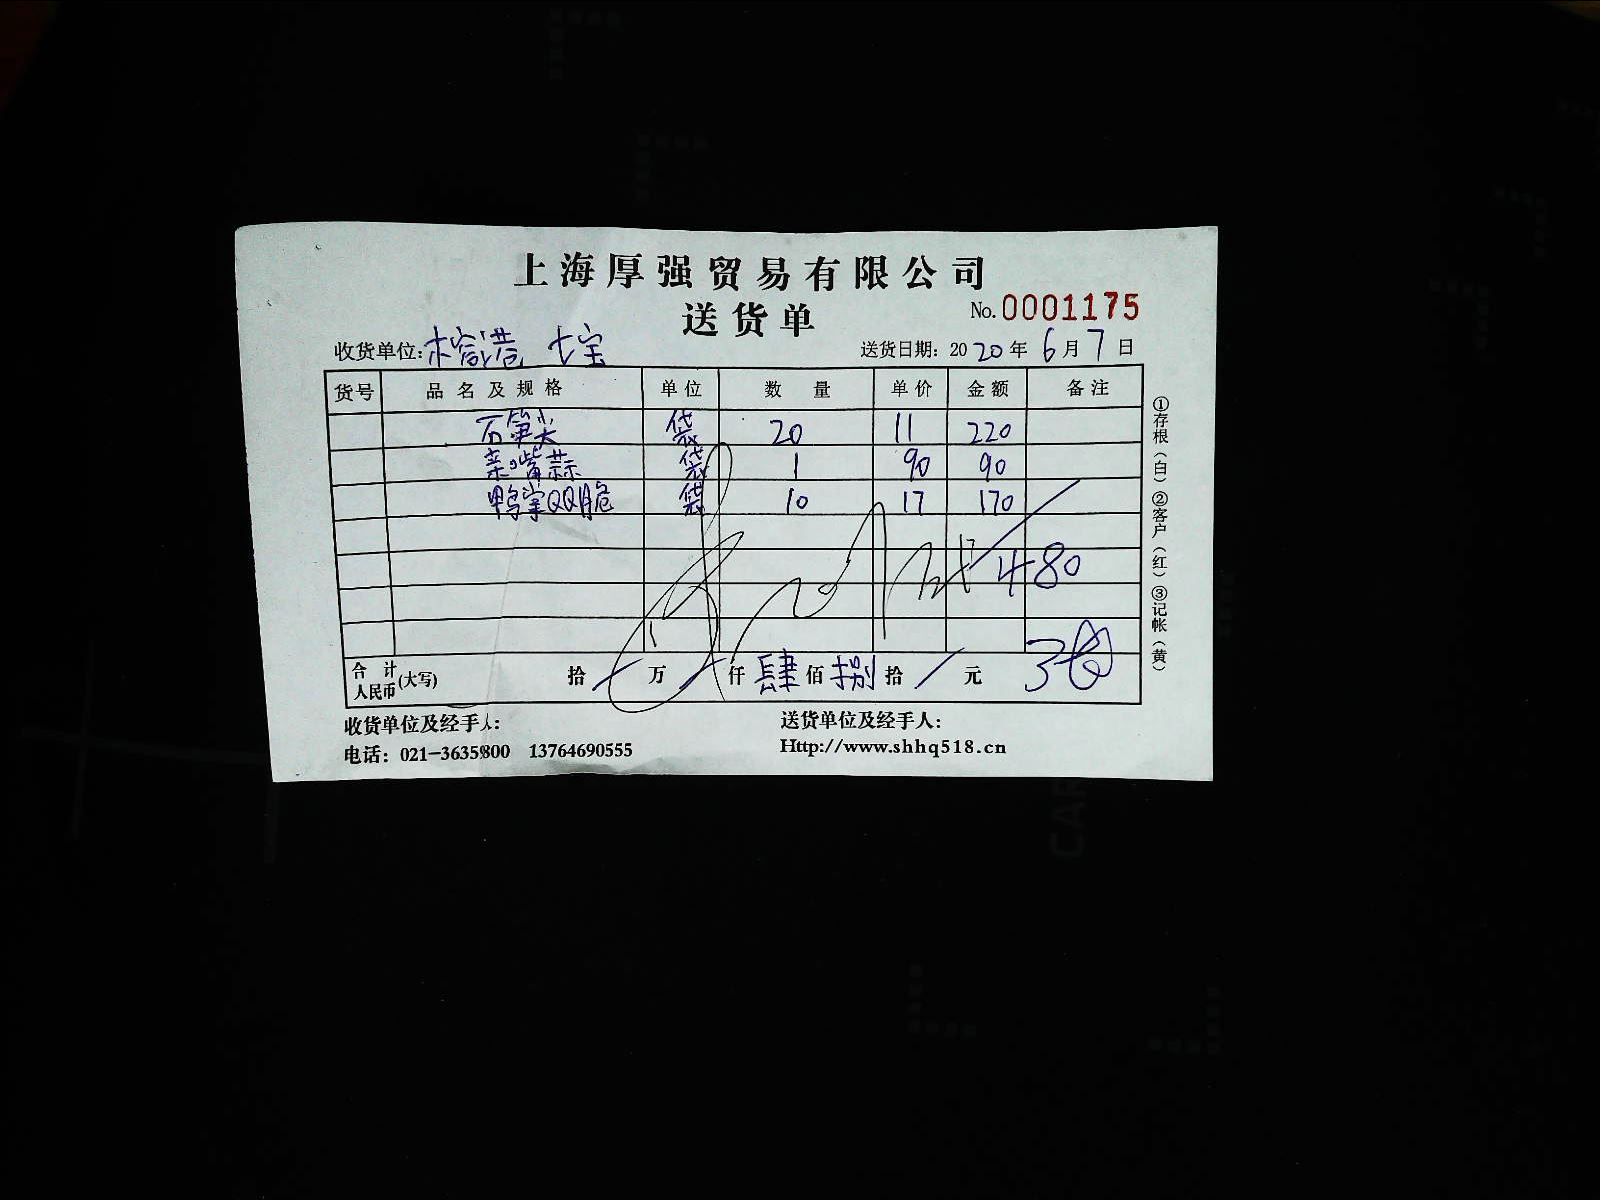 上海厚强贸易有限公司
送货单 No.0001175
收货单位:榕港 七宝 送货日期: 2020年6月7日
货号 品名及规格 单位 数量 单价 金额 备注
石笋尖 袋 20 11 220
亲嘴蒜 袋 1 90 90
鸭掌QQ脆 袋 10 17 170
480
合计人民币(大写) 拾/万/仟肆佰捌拾/元
收货单位及经手人: 送货单位及经手人:
电话: 021-3635800 13764690555 Http://www.shhq518.cn
①存根(白)②客户(红)③记帐(黄)